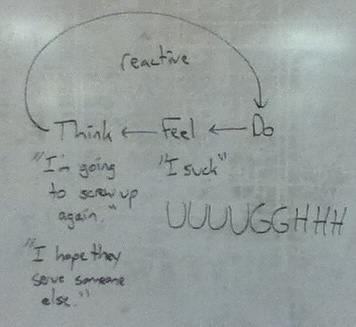 reactive
Think ← Feel ← Do
"I'm going
to screw up
again."
"I suck"
UUUUGGHHH
"I hope they
serve someone
else."